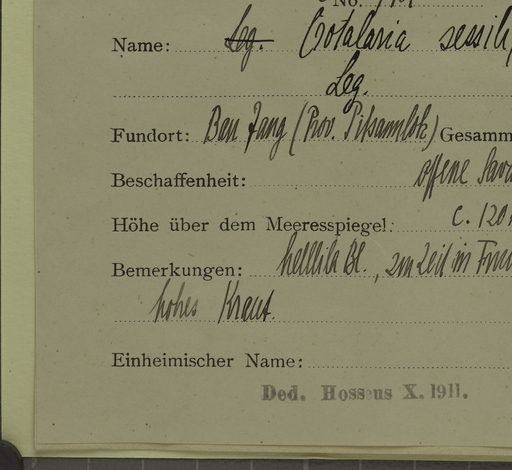 No.
Name: Leg. Crotalaria sessili
Leg.
Fundort: Ban Jang (Prov. Pitsanulok) Gesamm
Beschaffenheit: offene Sava
Höhe über dem Meeresspiegel: c. 120
Bemerkungen: helllila Bl., zur Zeit in
hohes Kraut.
Einheimischer Name:
Ded. Hosseus X. 1911.